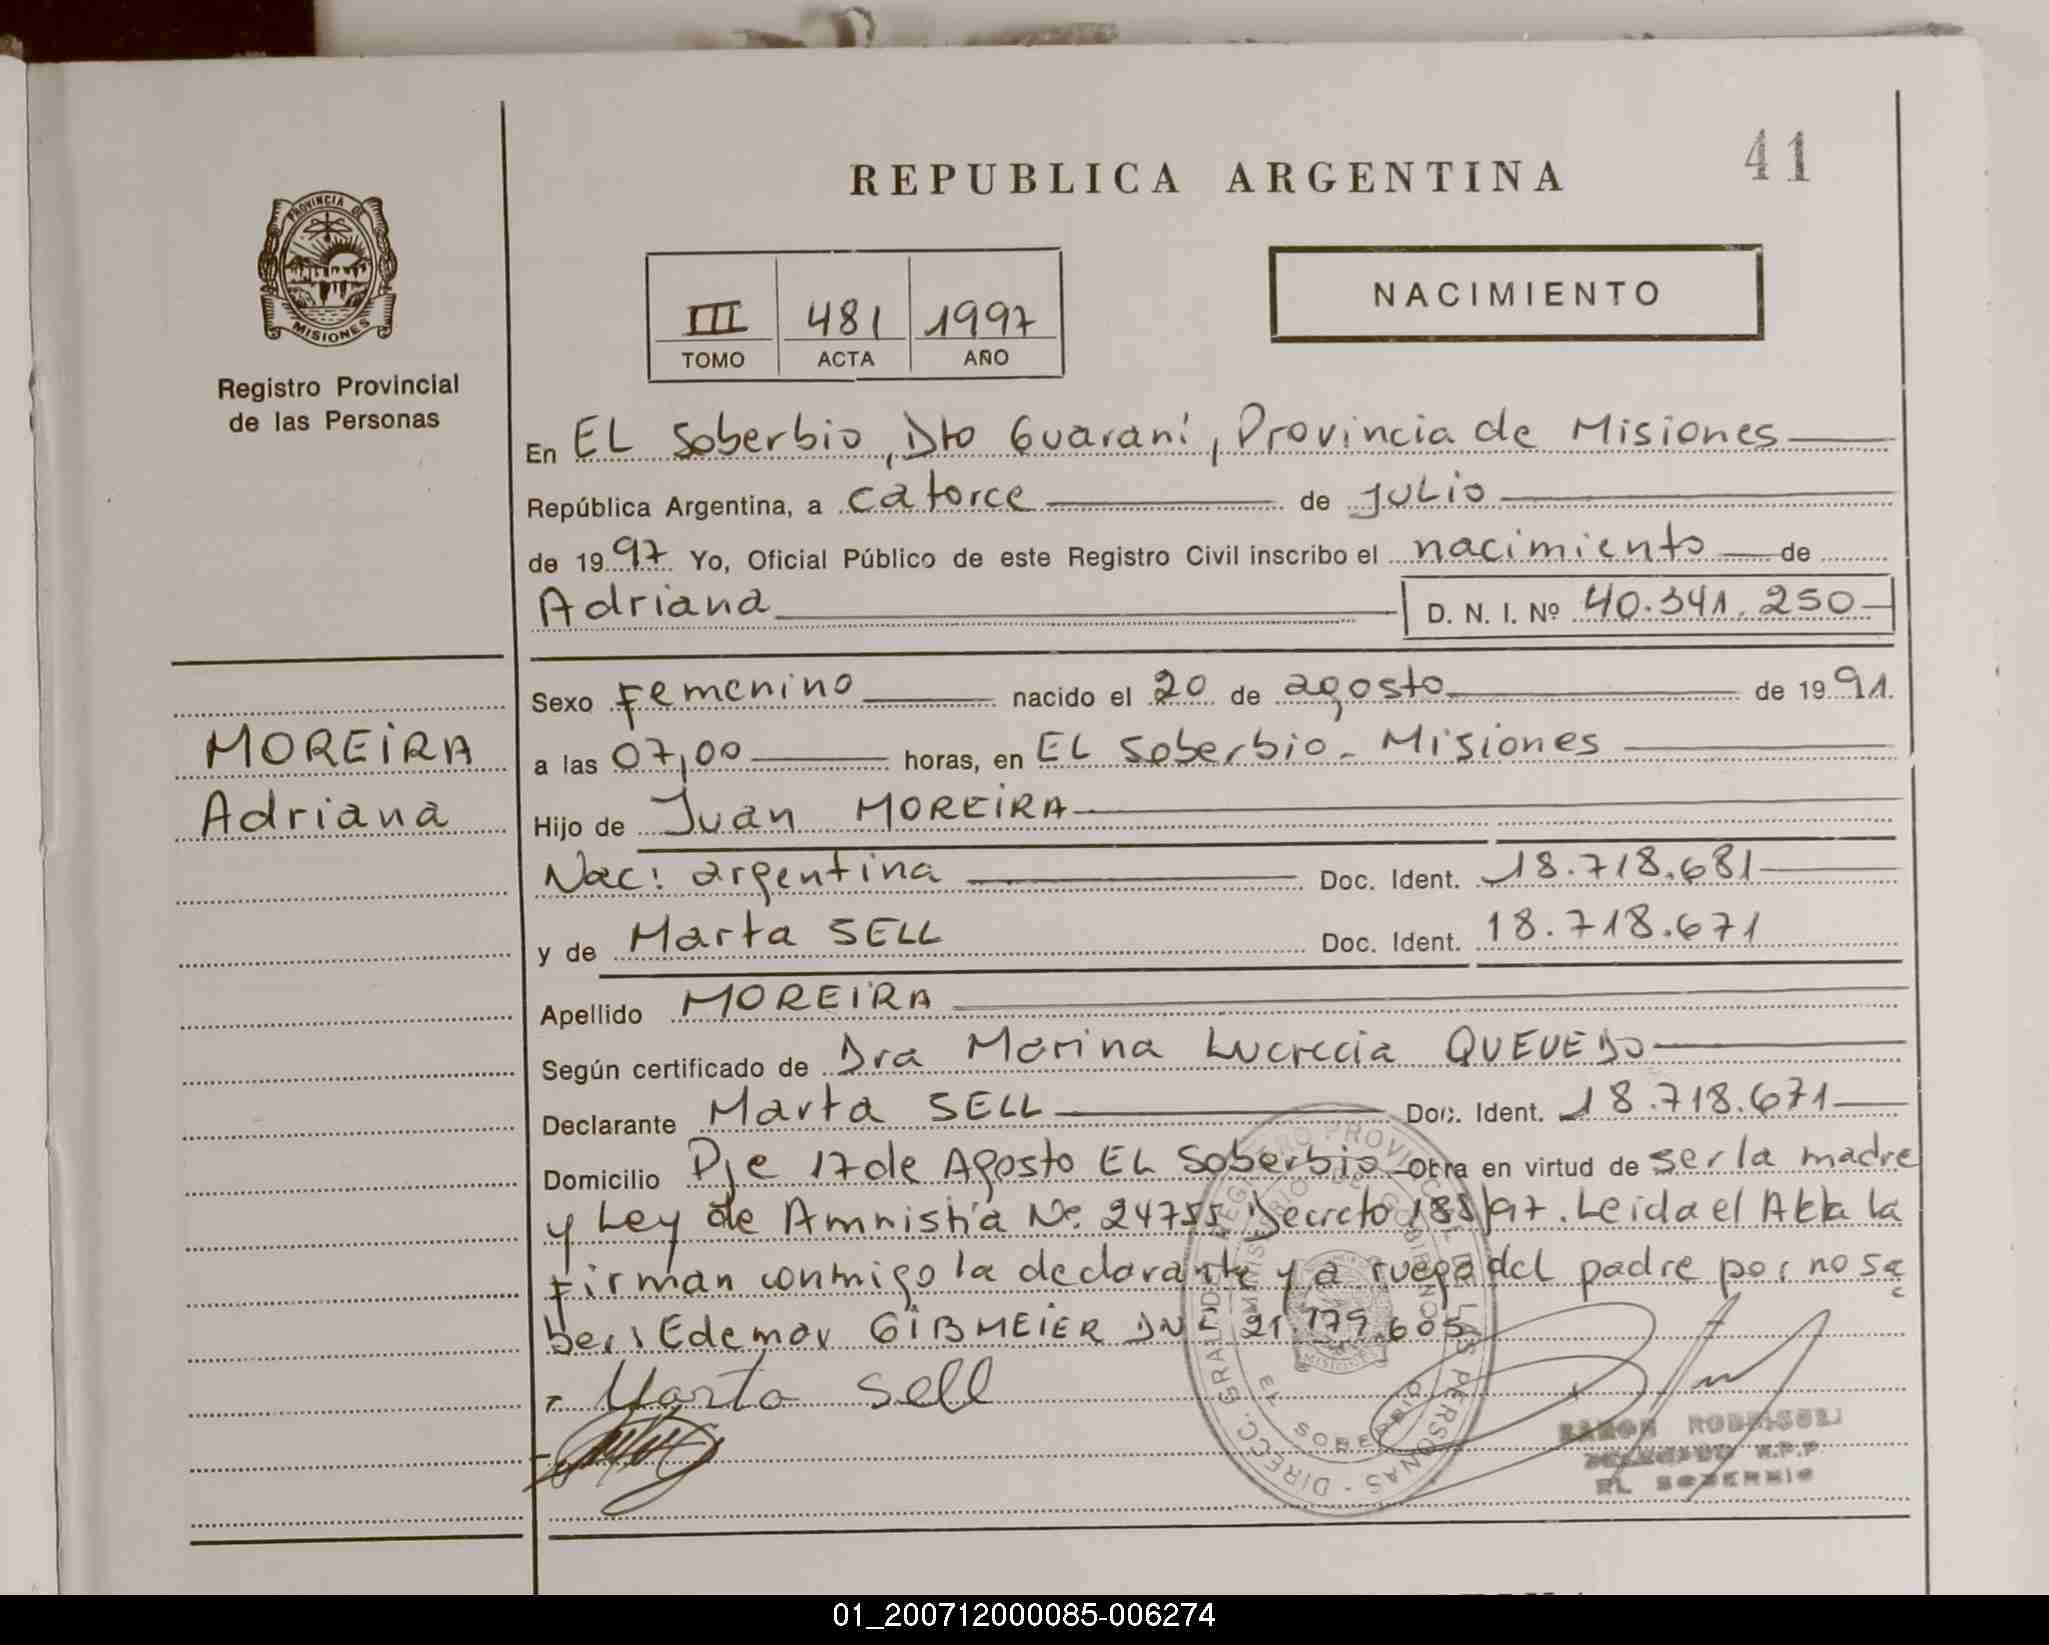 41
REPUBLICA ARGENTINA
PROVINCIA DE
MISIONES
Registro Provincial
de las Personas
III 481 1997
TOMO ACTA AÑO
NACIMIENTO
En EL Soberbio, Dto Guaraní, Provincia de Misiones
República Argentina, a catorce de julio
de 1997 Yo, Oficial Público de este Registro Civil inscribo el nacimiento de
Adriana D. N. I. Nº 40.341.250
MOREIRA
Adriana
Sexo Femenino nacido el 20 de agosto de 1991.
a las 07,00 horas, en EL Soberbio - Misiones
Hijo de Juan MOREIRA
Nac: argentina Doc. Ident. 18.718.681
y de Marta SELL Doc. Ident. 18.718.671
Apellido MOREIRA
Según certificado de Dra Marina Lucrecia QUEVEDO
Declarante Marta SELL Doc. Ident. 18.718.671
Domicilio Pje 17 de Agosto EL Soberbio Obra en virtud de ser la madre
y Ley de Amnistía Nº 24755 Decreto 188/97. Leida el Acta la
firman conmigo la declarante y a ruego del padre por no sa
ber, Edemar GIBMEIER DNI 21.179.605
- Marta Sell
RAMON
R.P.P
EL SOBERBIO
01_200712000085-006274